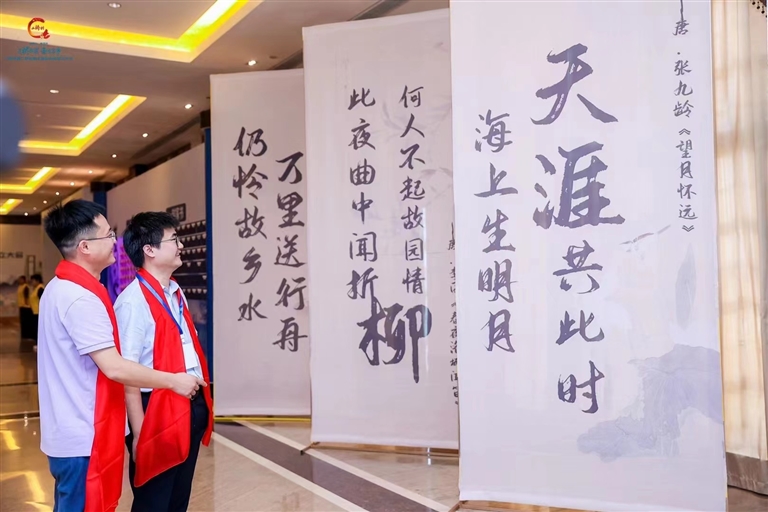 仍怜故乡水
万里送行舟
此夜曲中闻折柳
何人不起故园情
—唐·李白《春夜洛城闻笛》
海上生明月
天涯共此时
—唐·张九龄《望月怀远》